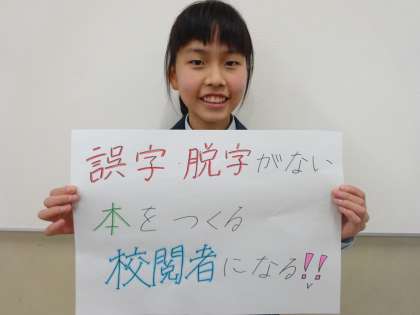 誤字・脱字がない
本をつくる
校閲者になる!!